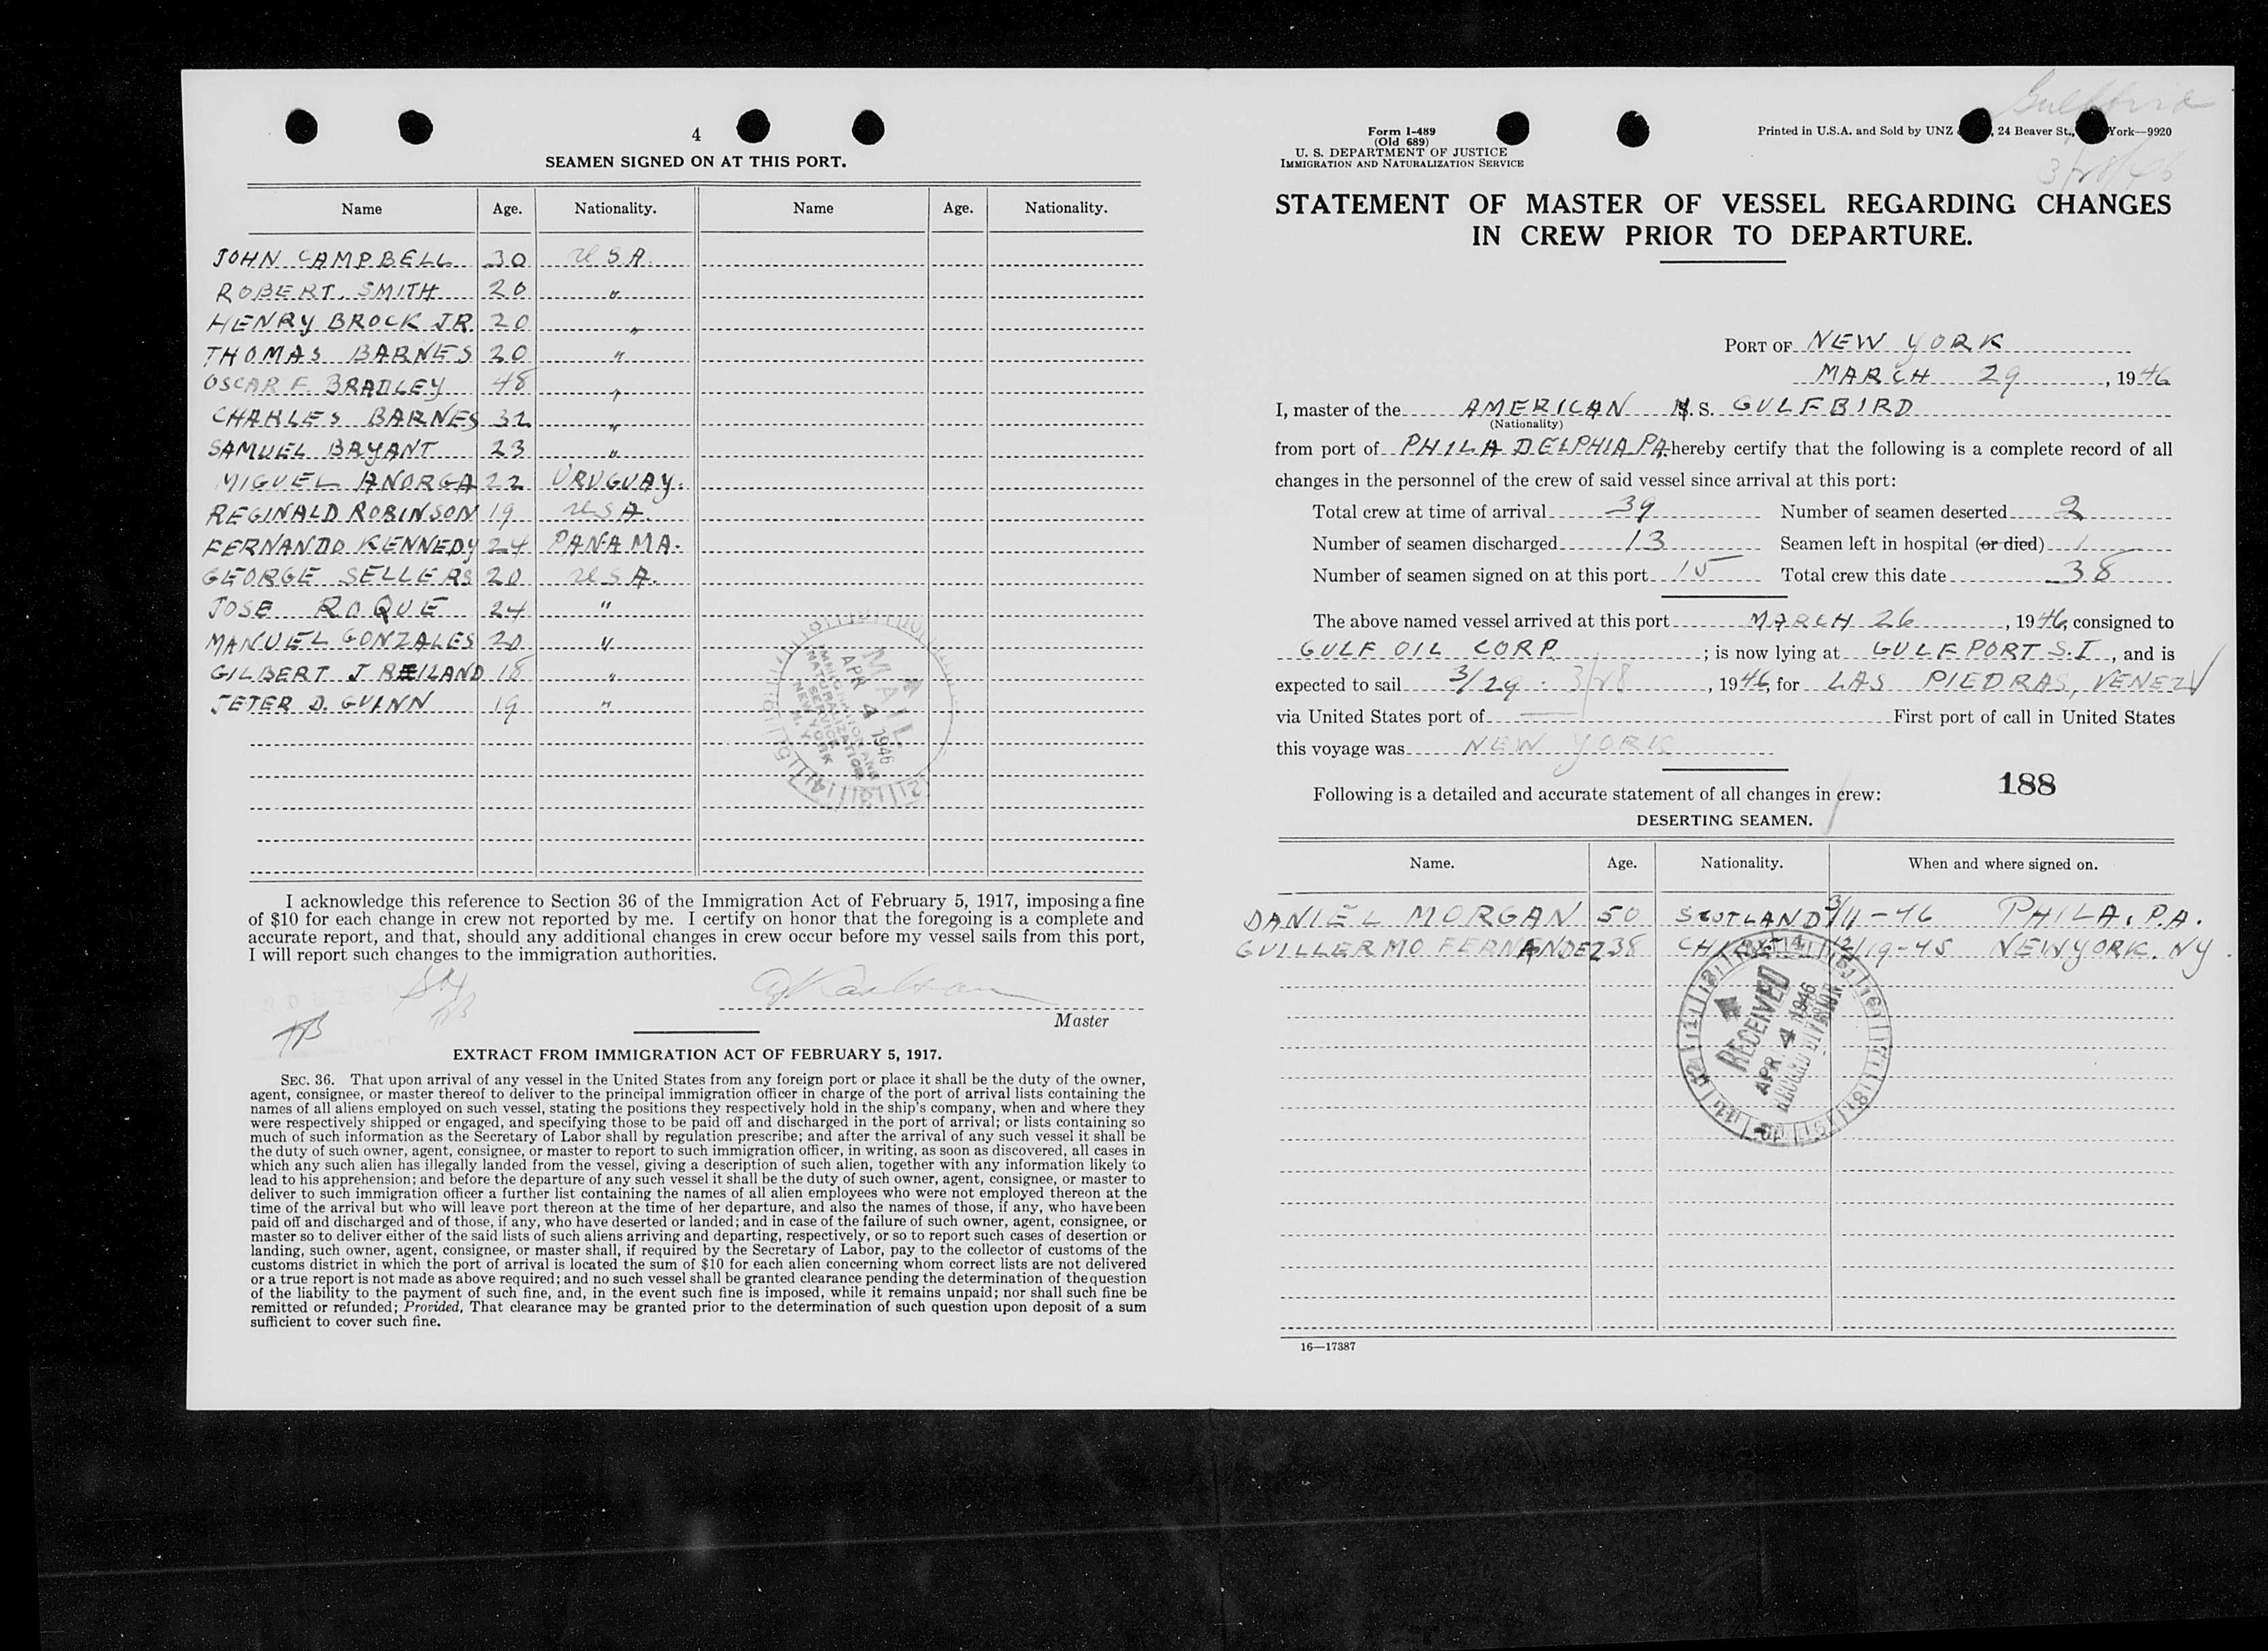 4
SEAMEN SIGNED ON AT THIS PORT.
Name Age. Nationality. Name Age. Nationality.
JOHN CAMPBELL 30 U S A.
ROBERT. SMITH 20 "
HENRY BROCK JR. 20 "
THOMAS BARNES 20 "
OSCAR F. BRADLEY 48 "
CHARLES BARNES 32 "
SAMUEL BRYANT 23 "
MIGUEL ANORGA 22 URUGUAY.
REGINALD ROBINSON 19 U S A.
FERNANDO KENNEDY 24 PANAMA.
GEORGE SELLERS 20 U S A.
JOSE ROQUE 24 "
MANUEL GONZALES 20 "
GILBERT J REILAND 18 "
JETER D. GUINN 19 "
MAIL
APR 4 1946
IMMIGRATION AND
NATURALIZATION
SERVICE
NEW YORK
N. Y.
I acknowledge this reference to Section 36 of the Immigration Act of February 5, 1917, imposing a fine
of $10 for each change in crew not reported by me. I certify on honor that the foregoing is a complete and
accurate report, and that, should any additional changes in crew occur before my vessel sails from this port,
I will report such changes to the immigration authorities.
Master
EXTRACT FROM IMMIGRATION ACT OF FEBRUARY 5, 1917.
SEC. 36. That upon arrival of any vessel in the United States from any foreign port or place it shall be the duty of the owner,
agent, consignee, or master thereof to deliver to the principal immigration officer in charge of the port of arrival lists containing the
names of all aliens employed on such vessel, stating the positions they respectively hold in the ship's company, when and where they
were respectively shipped or engaged, and specifying those to be paid off and discharged in the port of arrival; or lists containing so
much of such information as the Secretary of Labor shall by regulation prescribe; and after the arrival of any such vessel it shall be
the duty of such owner, agent, consignee, or master to report to such immigration officer, in writing, as soon as discovered, all cases in
which any such alien has illegally landed from the vessel, giving a description of such alien, together with any information likely to
lead to his apprehension; and before the departure of any such vessel it shall be the duty of such owner, agent, consignee, or master to
deliver to such immigration officer a further list containing the names of all alien employees who were not employed thereon at the
time of the arrival but who will leave port thereon at the time of her departure, and also the names of those, if any, who have been
paid off and discharged and of those, if any, who have deserted or landed; and in case of the failure of such owner, agent, consignee, or
master so to deliver either of the said lists of such aliens arriving and departing, respectively, or so to report such cases of desertion or
landing, such owner, agent, consignee, or master shall, if required by the Secretary of Labor, pay to the collector of customs of the
customs district in which the port of arrival is located the sum of $10 for each alien concerning whom correct lists are not delivered
or a true report is not made as above required; and no such vessel shall be granted clearance pending the determination of the question
of the liability to the payment of such fine, and, in the event such fine is imposed, while it remains unpaid; nor shall such fine be
remitted or refunded; Provided, That clearance may be granted prior to the determination of such question upon deposit of a sum
sufficient to cover such fine.
Gulfbird
3/28/46
Form I-489
(Old 689)
U. S. DEPARTMENT OF JUSTICE
IMMIGRATION AND NATURALIZATION SERVICE
Printed in U.S.A. and Sold by UNZ , 24 Beaver St., York—9920
STATEMENT OF MASTER OF VESSEL REGARDING CHANGES
IN CREW PRIOR TO DEPARTURE.
PORT OF NEW YORK
MARCH 29, 1946
I, master of the AMERICAN M. S. GULFBIRD
(Nationality)
from port of PHILADELPHIA PA. hereby certify that the following is a complete record of all
changes in the personnel of the crew of said vessel since arrival at this port:
Total crew at time of arrival 39 Number of seamen deserted 2
Number of seamen discharged 13 Seamen left in hospital (or died) 1
Number of seamen signed on at this port 15 Total crew this date 38
The above named vessel arrived at this port MARCH 26, 1946, consigned to
GULF OIL CORP. ; is now lying at GULFPORT S.I, and is
expected to sail 3/29 - 3/28, 1946, for LAS PIEDRAS, VENEZ
via United States port of First port of call in United States
this voyage was NEW YORK
188
Following is a detailed and accurate statement of all changes in crew:
DESERTING SEAMEN.
Name. Age. Nationality. When and where signed on.
DANIEL MORGAN 50 SCOTLAND 3/11-46 PHILA. P.A.
GUILLERMO FERNANDEZ 38 CHILE 12/19-45 NEW YORK. NY.
RECEIVED
APR 4 1946
RECORD DIVISION
16—17387